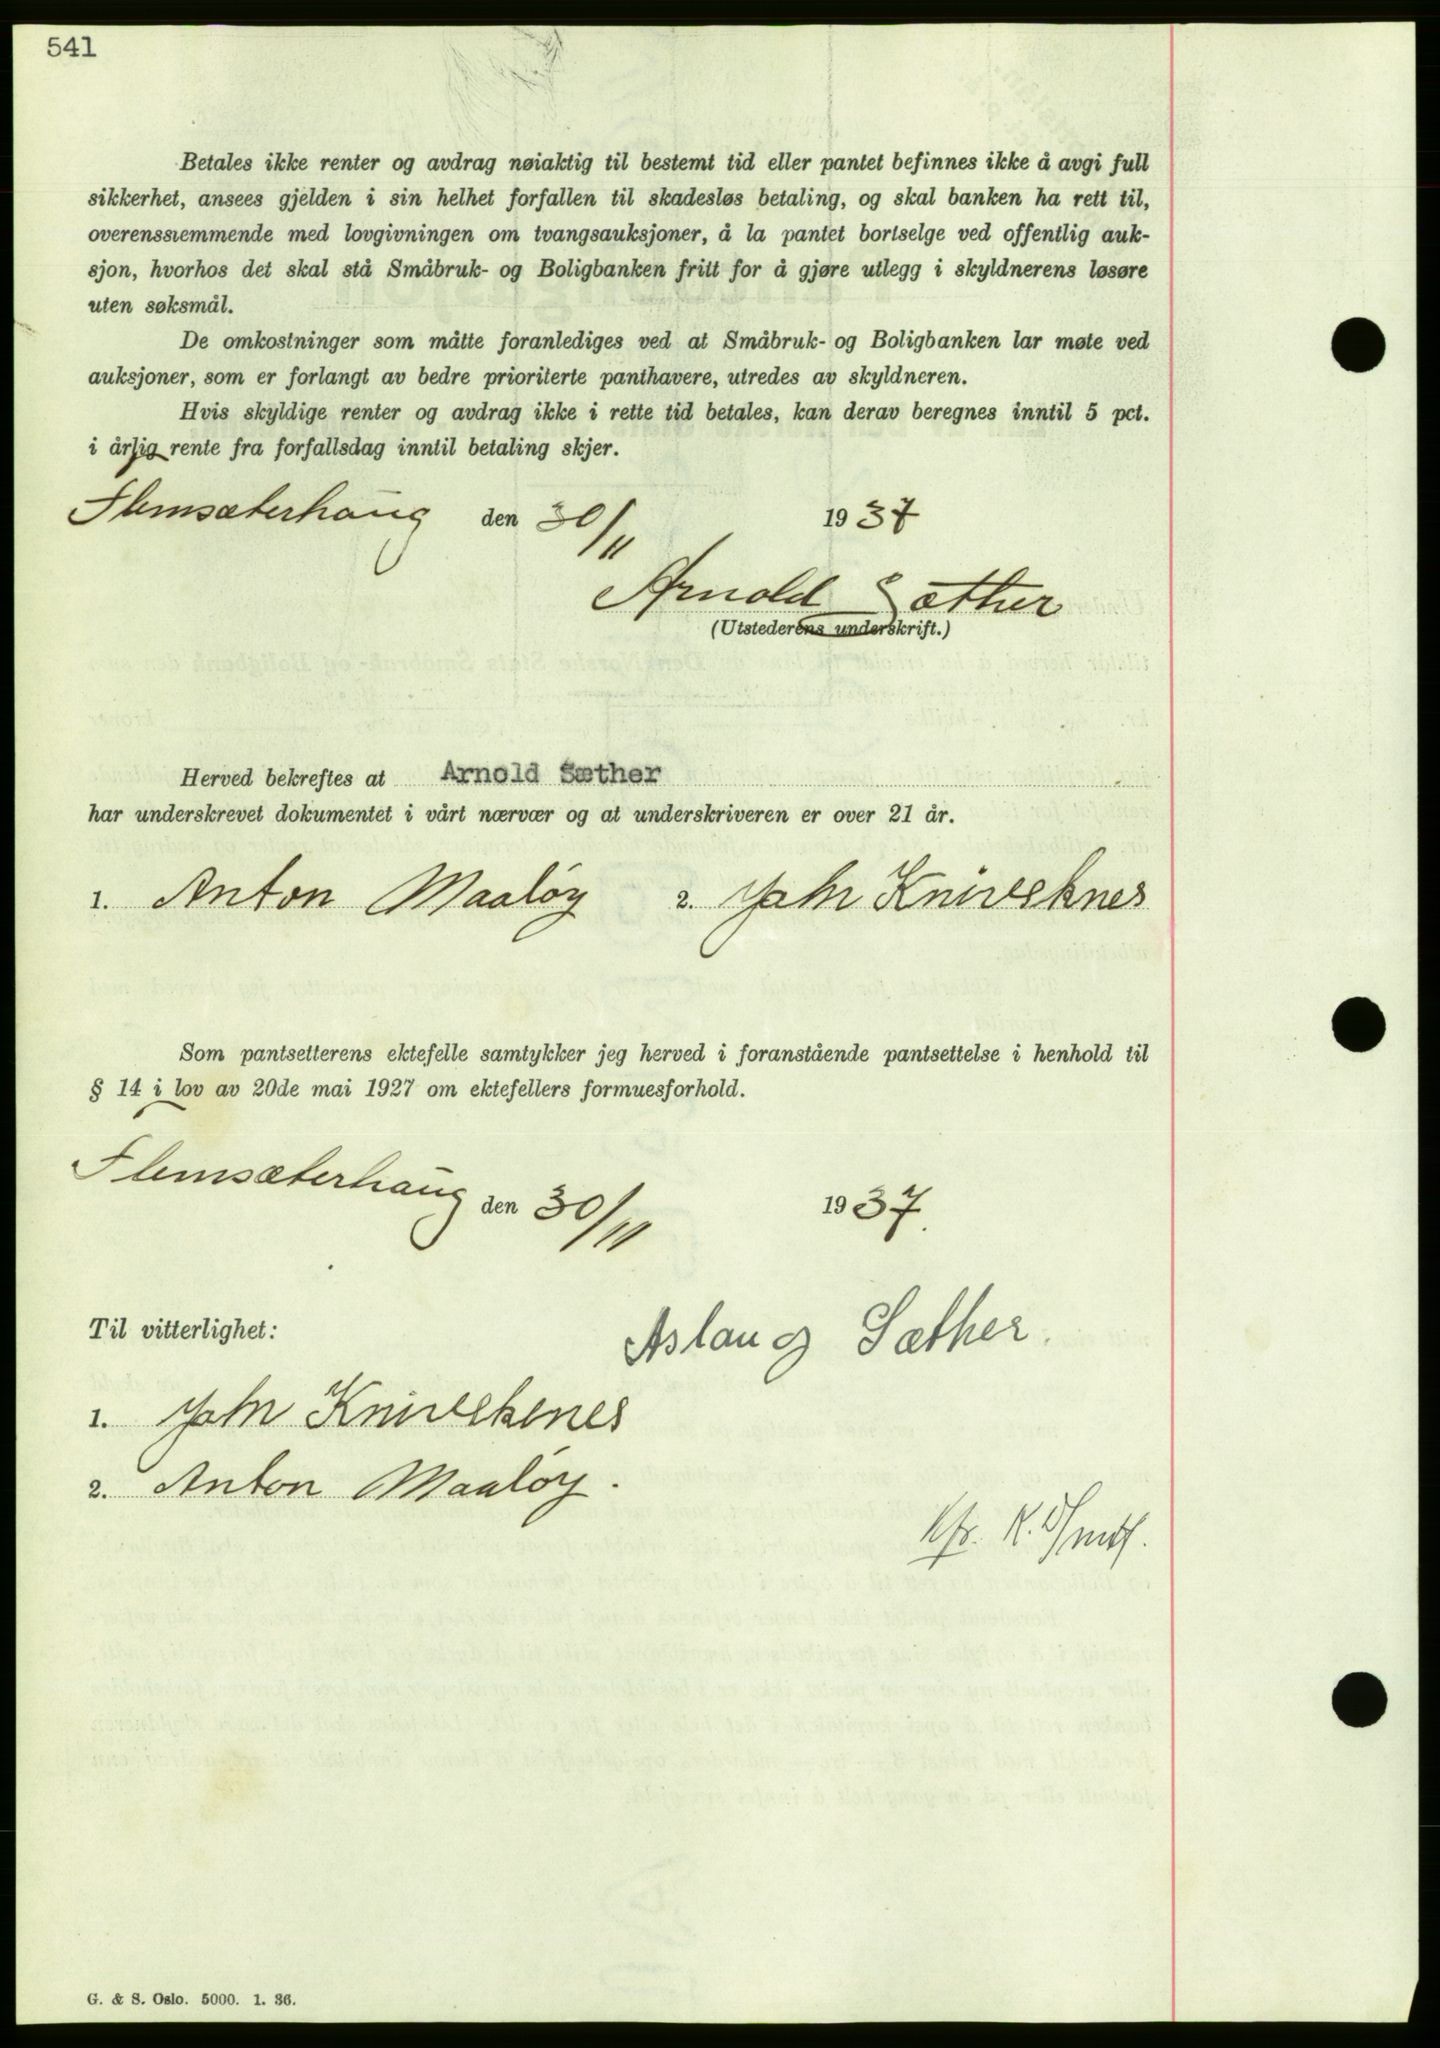 541
Betales ikke renter og avdrag nøiaktig til bestemt tid eller pantet befinnes ikke å avgi full
sikkerhet, ansees gjelden i sin helhet forfallen til skadesløs betaling, og skal banken ha rett til,
overensstemmende med lovgivningen om tvangsauksjoner, å la pantet bortselge ved offentlig auk-
sjon, hvorhos det skal stå Småbruk- og Boligbanken fritt for å gjøre utlegg i skyldnerens løsøre
uten søksmål.
De omkostninger som måtte foranlediges ved at Småbruk- og Boligbanken lar møte ved
auksjoner, som er forlangt av bedre prioriterte panthavere, utredes av skyldneren.
Hvis skyldige renter og avdrag ikke i rette tid betales, kan derav beregnes inntil 5 pct.
i årlig rente fra forfallsdag inntil betaling skjer.
Flemsæterhaug den 30/11 1937
Arnold Sæther
(Utstederens underskrift.)
Herved bekreftes at Arnold Sæther
har underskrevet dokumentet i vårt nærvær og at underskriveren er over 21 år.
1. Anton Maaløy 2. Johr Knivseknes
Som pantsetterens ektefelle samtykker jeg herved i foranstående pantsettelse i henhold til
§ 14 i lov av 20de mai 1927 om ektefellers formuesforhold.
Flemsæterhaug den 30/11 1937.
Til vitterlighet:
Aslaug Sæther.
1.
2. Anton Maaløy.
G. & S. Oslo. 5000. 1. 36.